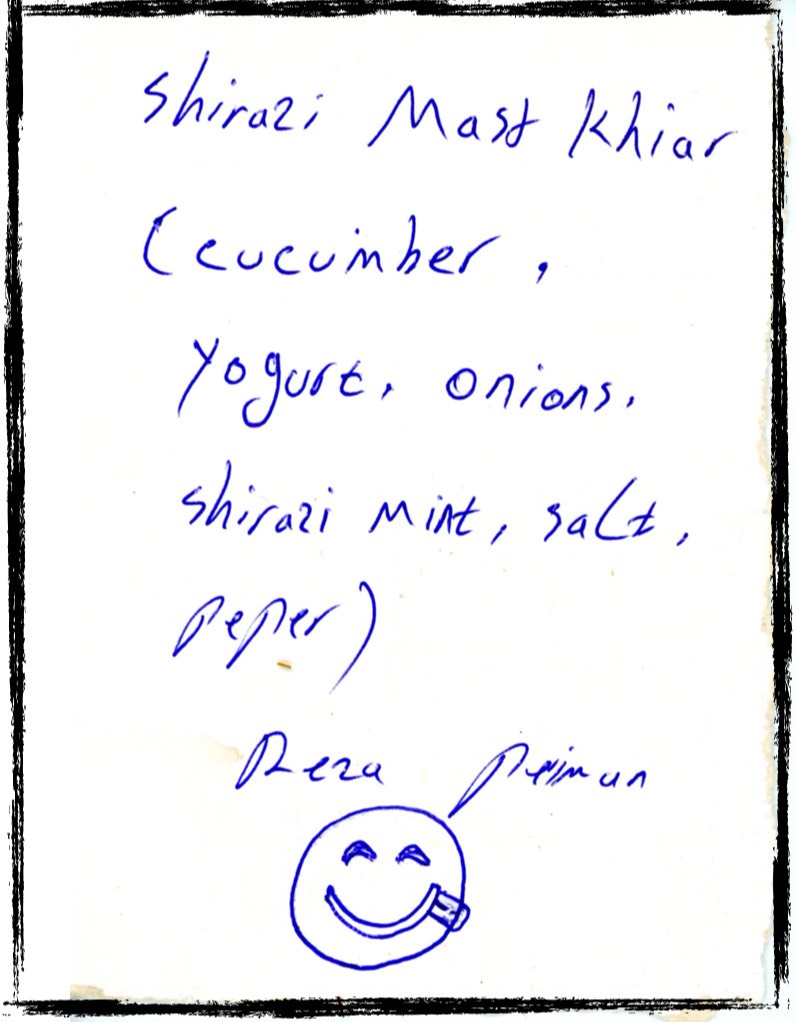 Shirazi Mast Khiar
(cucumber,
yogurt, onions.
shirazi Mint, salt,
peper)
Reza Peiman